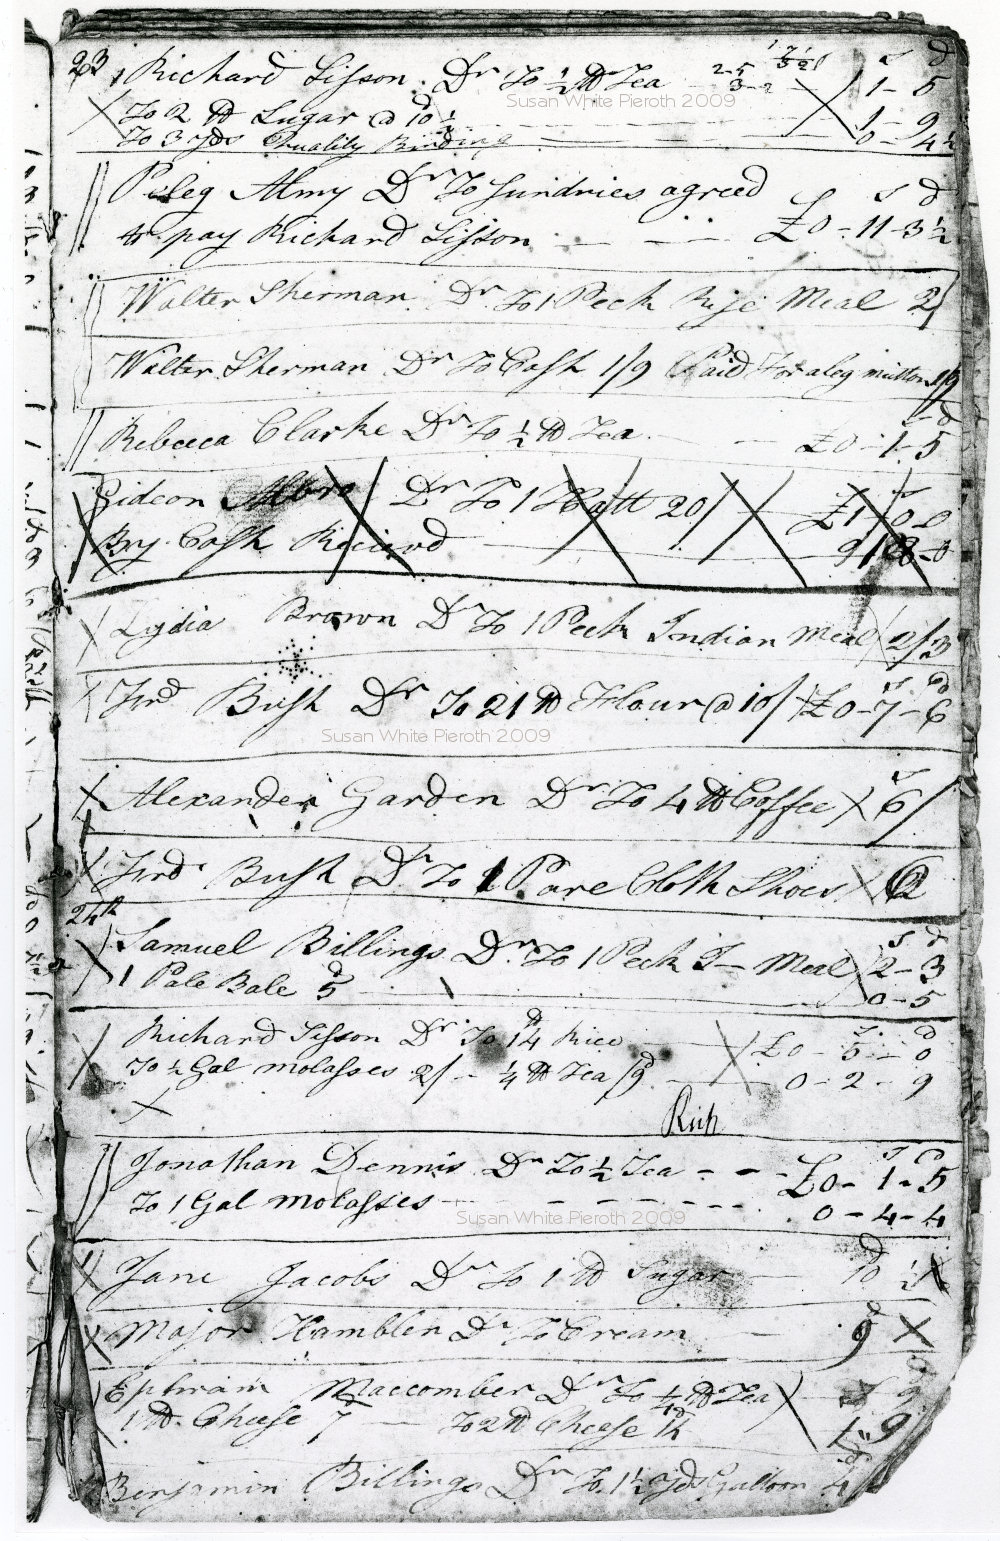 23
1 Richard Sisson Dr To ½ tt Tea 2-5 3-2 S d 1-5
To 2 tt Sugar @ 10 d ½ 1-9
To 3 yds Quality Binding 0-4½
Susan White Pieroth 2009
Peleg Almy Dr To Sundries agreed S d
to pay Richard Sisson £0-11-3½
Walter Sherman Dr To 1 Peck Rije Meal 2/
Walter Sherman Dr To Cash 1/9 Paid For a leg mutton 1/9
Rebecca Clarke Dr To ½ tt Tea £0-1-5
Gideon Albro Dr To 1 Hatt 20/ £1-0-0
By Cash Recievd
Lydia Brown Dr To 1 Peck Indian Meal 2/3
Frd Bush Dr To 21 tt Flour @ 10/ £0-7-6
Susan White Pieroth 2009
Alexander Garden Dr To 4 tt Coffee 6/
Frd Bush Dr To 1 Pare Cloth Shoes
24th
Samuel Billings Dr To 1 Peck I— Meal S d 2-3
1 Pale Bale 5 d 0-5
Richard Sisson Dr To 14 tt Rice £0-5-0
To ½ Gal molasses 2/ - ¼ tt Tea /9 d 0-2-9
Rich
Jonathan Dennis Dr To ½ Tea £0-1-5
To 1 Gal molasses 0-4-4
Susan White Pieroth 2009
Jane Jacobs Dr To 1 tt Sugar 10 d ½
Major Hamblin Dr To Cream 9 d
Ephraim Maccomber Dr To ¼ tt Tea 9
1 tt Cheese 7 d To 2 tt Cheese 1/2 1"9
Benjamin Billings Dr To 1½ yds Galloon